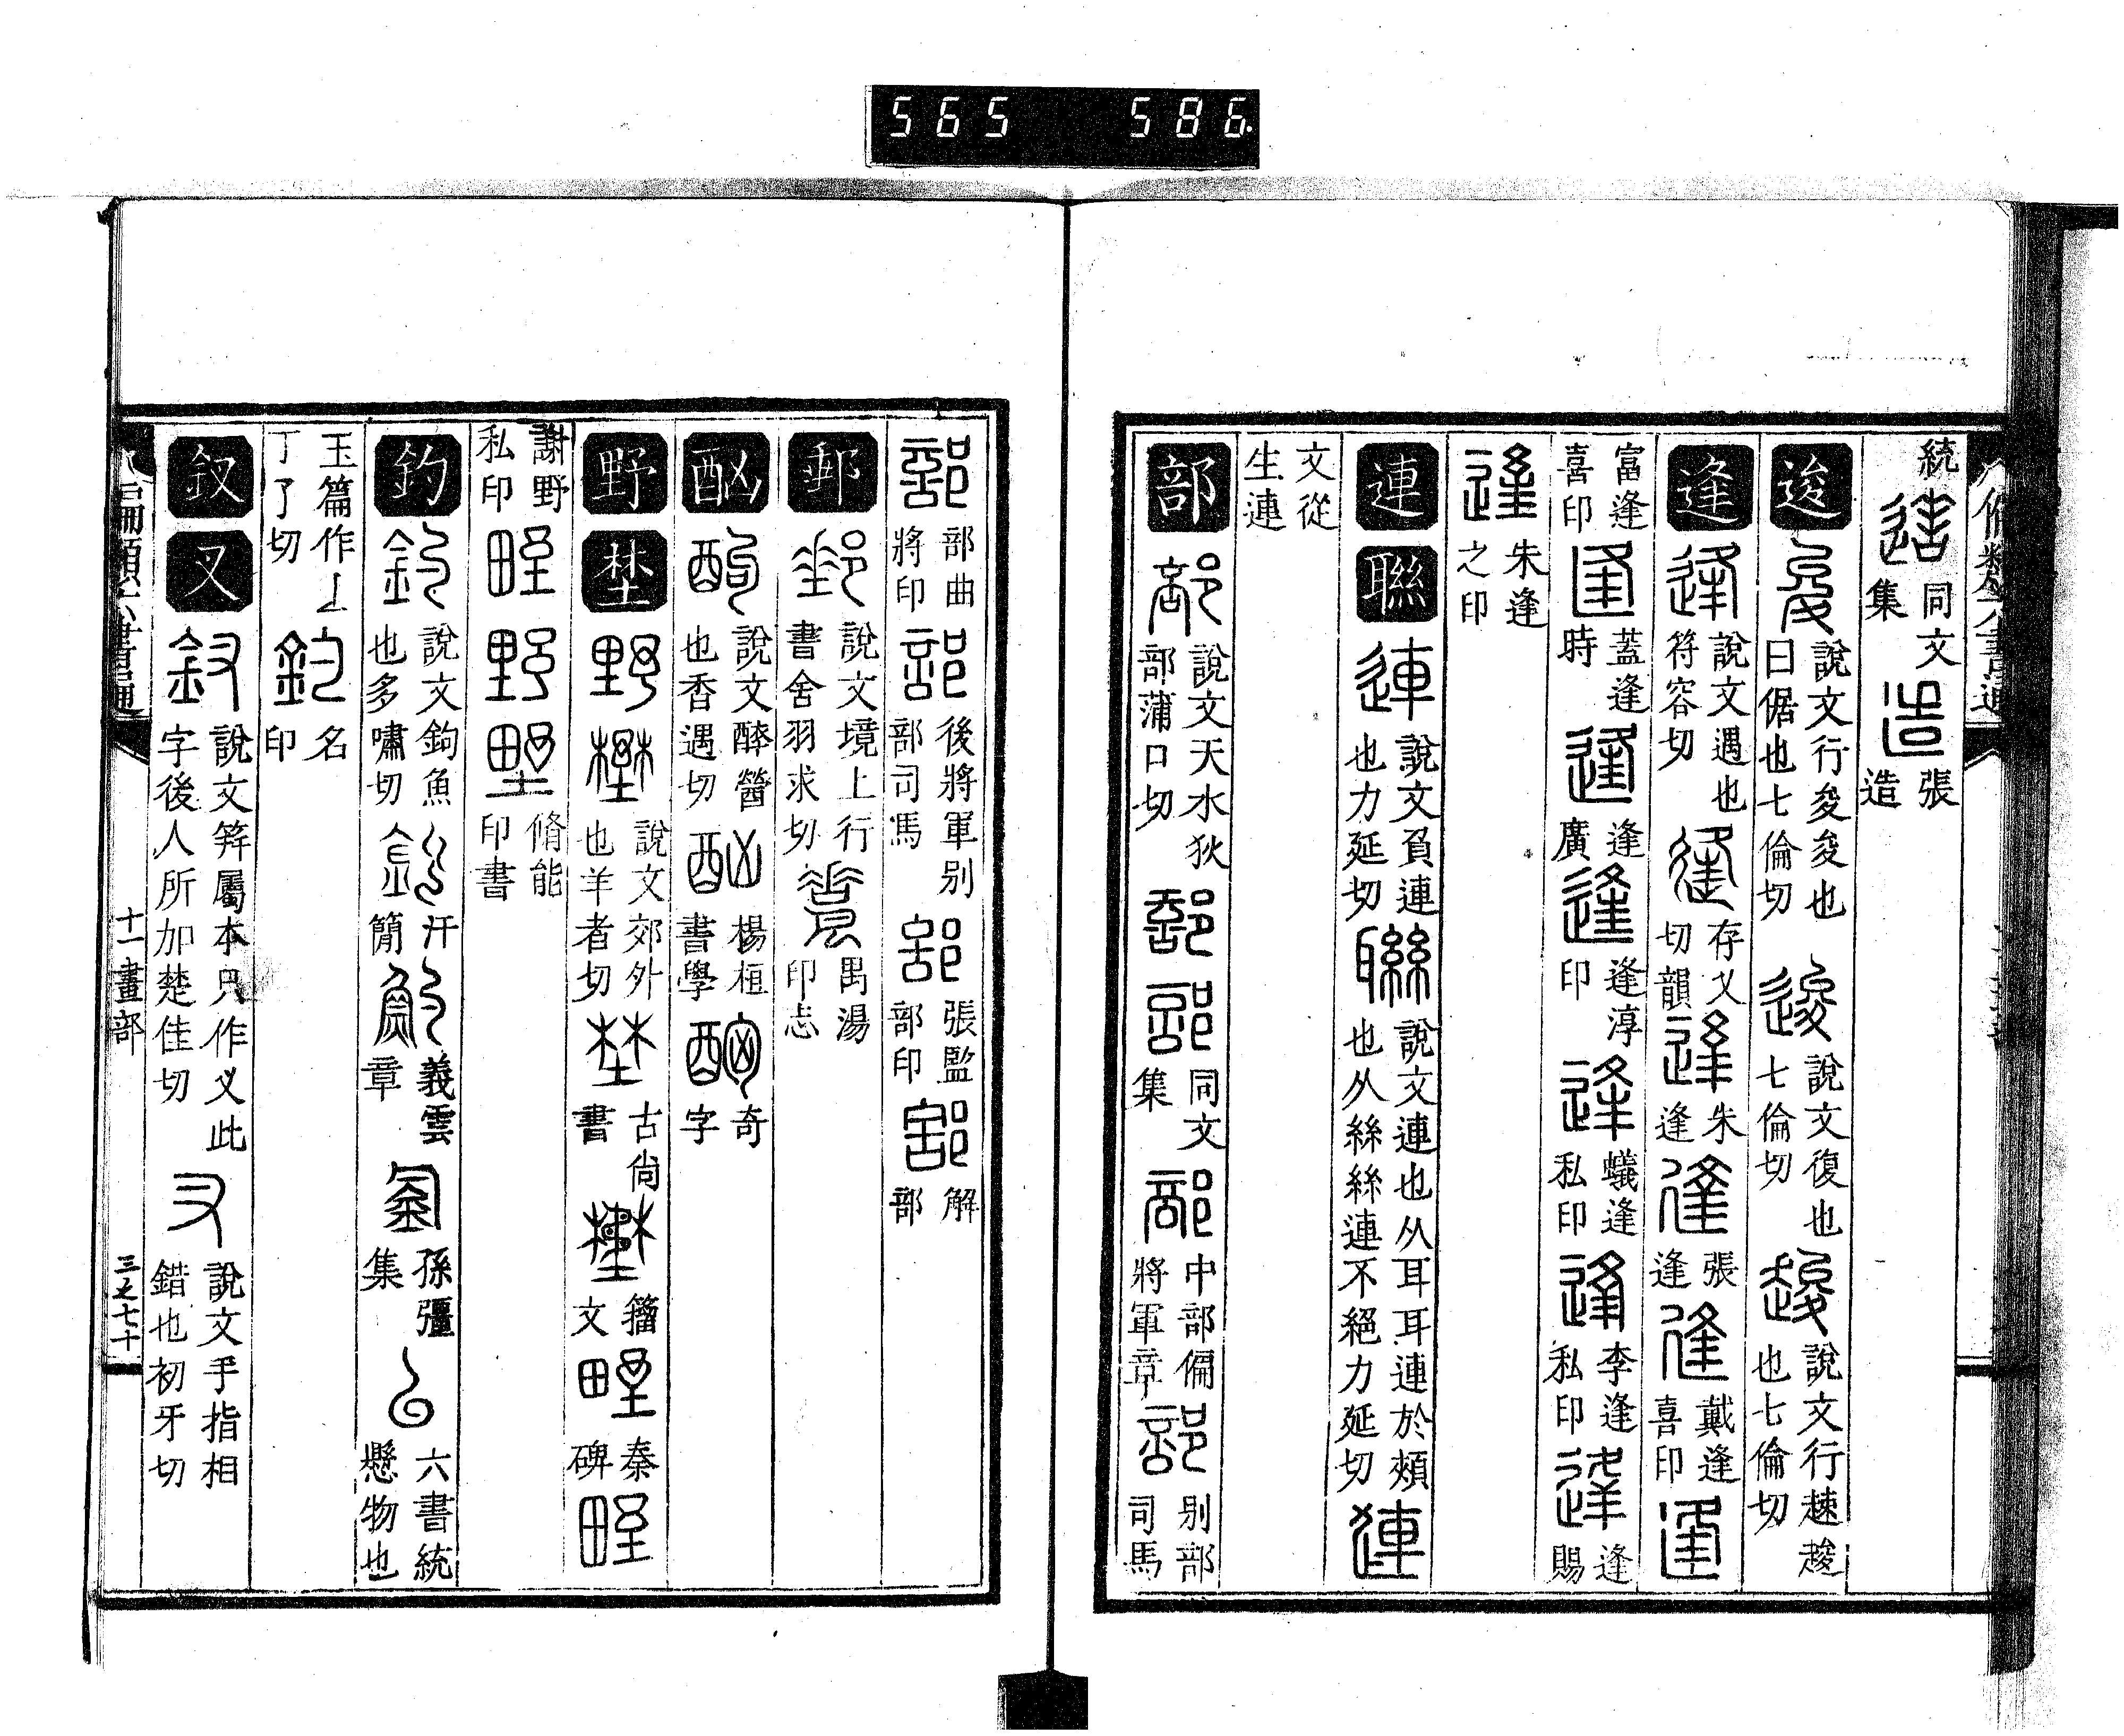 565 586
統造同文集造張造
逡夋說文行夋夋也曰倨也七倫切逡說文復也七倫切䞭說文行䞭䞭也七倫切
逢逢說文遇也符容切逢存乂切韻逢朱逢逢張逢逢戴逢喜印逢
富逢喜印逢蓋逢時逢逢廣逢逢淳印逢蟻逢私印逢李逢私印逢逢賜
逢朱逢之印
連聯連說文負連也力延切聯說文連也从耳耳連於頰也从絲絲連不絕力延切連
文從生連
部部說文天水狄部蒲口切部部同文集部中部偏將軍章部別部司馬
部部曲將印部後將軍別部司馬部張監部印部解部
郵郵說文境上行書舍羽求切郵禺湯印志
酗酗說文醉醟也香遇切酗楊桓書學酗奇字
野埜野野說文郊外也羊者切埜古尚書野籀文野秦碑野
謝野私印野野野脩能印書
釣釣說文鉤魚也多嘯切釣汗簡釣義雲章釣孫彊集釣六書統懸物也
玉篇作丄丁了切釣名印
釵叉釵說文笄屬本只作叉此字後人所加楚佳切叉說文手指相錯也初牙切
十一畫部
三之七十